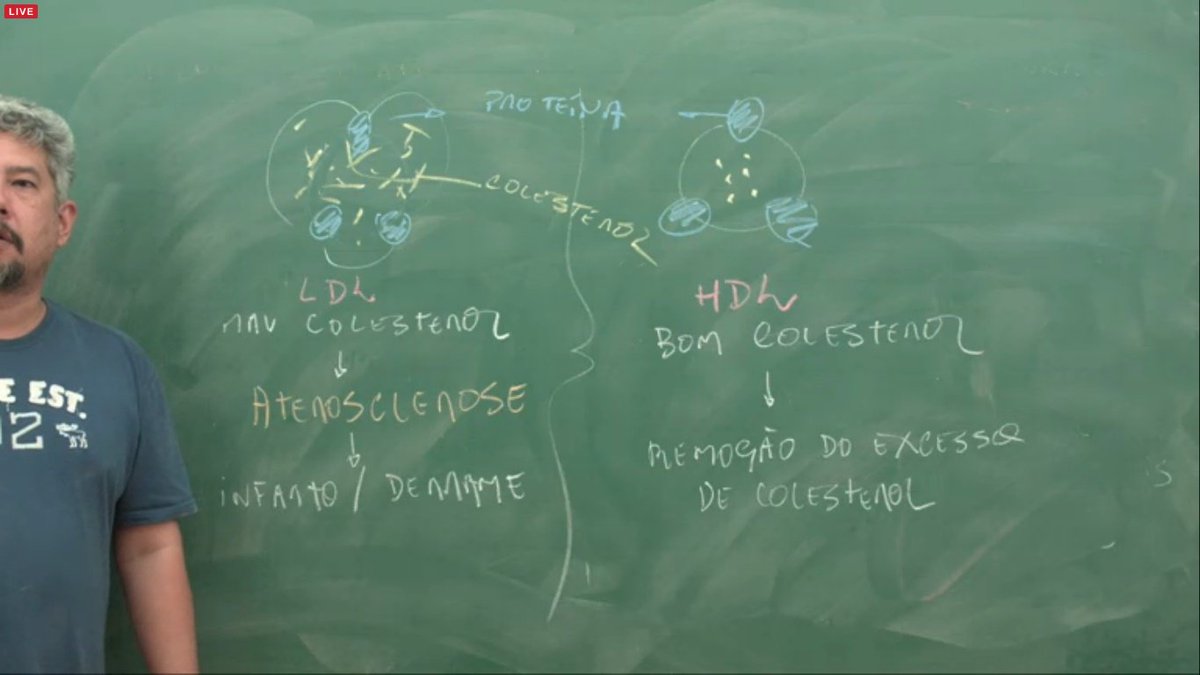 LIVE
PROTEÍNA
COLESTEROL
LDL
MAU COLESTEROL
ATEROSCLEROSE
INFARTO / DERRAME
HDL
BOM COLESTEROL
REMOÇÃO DO EXCESSO
DE COLESTEROL
E EST.
02